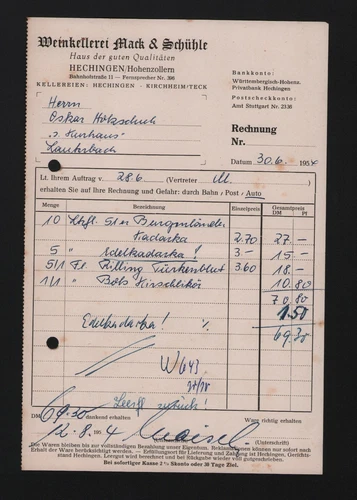 Weinkellerei Mack & Schühle
Haus der guten Qualitäten
HECHINGEN/Hohenzollern
Bahnhofstraße 11 — Fernsprecher Nr. 398
KELLEREIEN: HECHINGEN - KIRCHHEIM/TECK
Bankkonto:
Württembergisch-Hohenz.
Privatbank Hechingen
Postscheckkonto:
Amt Stuttgart Nr. 2338
Herrn
Oskar
"z. Kurhaus"
Lauterbach
Rechnung
Nr.
Datum 30.6. 1954
Lt. Ihrem Auftrag v. 28.6. (Vertreter M.)
erhalten Sie auf Ihre Rechnung und Gefahr: durch Bahn, Post, Auto
Menge Bezeichnung Einzelpreis Gesamtpreis
DM Pf
10 Ltrfl. 51er Burgenländer
Kadarka 2.70 27.—
5 " Edelkadarka! 3.— 15.—
5/1 Fl. Rilling Türkenblut 3.60 18.—
1/1 " Bols Kirschlikör 10.80
70.80
1.50
69.30
Edelkadarka! %
W643
Leergt. zurück!
DM 69.30 dankend erhalten Ware richtig erhalten:
12.8. 1954 (Unterschrift)
Die Waren bleiben bis zur vollständigen Bezahlung unser Eigentum. Reklamationen können nur sofort nach
Erhalt der Ware berücksichtigt werden. — Erfüllungsort für Lieferung und Zahlung ist Hechingen, Gerichts-
stand Hechingen. Leergut wird berechnet und bei Rückgabe wieder voll gutgeschrieben.
Bei sofortiger Kasse 2% Skonto oder 30 Tage Ziel.